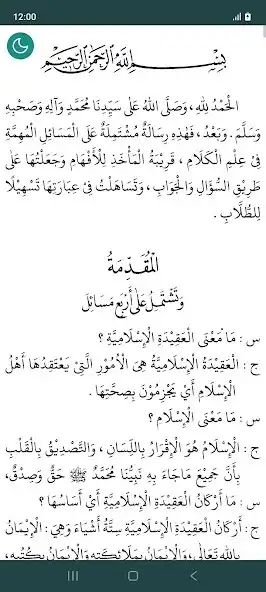 12:00
بِسْمِ اللّٰهِ الرَّحْمٰنِ الرَّحِيْمِ
الْحَمْدُ لِلّٰهِ ، وَصَلَّى اللّٰهُ عَلَى سَيِّدِنَا مُحَمَّدٍ وَآلِهِ وَصَحْبِهِ
وَسَلَّمَ . وَبَعْدُ ، فَهٰذِهِ رِسَالَةٌ مُشْتَمِلَةٌ عَلَى الْمَسَائِلِ الْمُهِمَّةِ
فِيْ عِلْمِ الْكَلَامِ ، قَرِيْبَةُ الْمَأْخَذِ لِلْأَفْهَامِ وَجَعَلْتُهَا عَلَى
طَرِيْقِ السُّؤَالِ وَالْجَوَابِ ، وَتَسَاهَلْتُ فِيْ عِبَارَتِهَا تَسْهِيْلًا
لِلطُّلَّابِ .
الْمُقَدِّمَةُ
وَتَشْتَمِلُ عَلَى أَرْبَعِ مَسَائِلَ
س : مَا مَعْنَى الْعَقِيْدَةِ الْإِسْلَامِيَّةِ ؟
ج : الْعَقِيْدَةُ الْإِسْلَامِيَّةُ هِيَ الْأُمُوْرِ الَّتِيْ يَعْتَقِدُهَا أَهْلُ
الْإِسْلَامِ أَيْ يَجْزِمُوْنَ بِصِحَّتِهَا .
س : مَا مَعْنَى الْإِسْلَامِ ؟
ج : الْإِسْلَامُ هُوَ الْإِقْرَارُ بِاللِّسَانِ ، وَالتَّصْدِيْقُ بِالْقَلْبِ
بِأَنَّ جَمِيْعَ مَاجَاءَ بِهِ نَبِيُّنَا مُحَمَّدٌ ﷺ حَقٌّ وَصِدْقٌ،
س : مَا أَرْكَانُ الْعَقِيْدَةِ الْإِسْلَامِيَّةِ أَيْ أَسَاسُهَا ؟
ج : أَرْكَانُ الْعَقِيْدَةِ الْإِسْلَامِيَّةِ سِتَّةُ أَشْيَاءَ وَهِيَ : الْإِيْمَانُ
بِاللّٰهِ تَعَالَى ، وَالْإِيْمَانُ بِمَلَائِكَتِهِ وَالْإِيْمَانُ بِكُتُبِهِ،